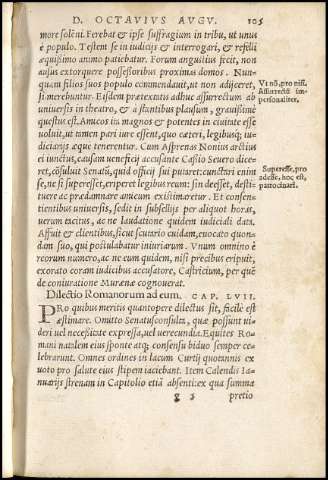 D. OCTAVIUS AUGU. 105
more solēni. Ferebat & ipse suffragium in tribu, ut unus
è populo. Testem se in iudicijs & interrogari, & refelli
æquissimo animo patiebat. Forum angustius fecit, non
ausus extorquere possessoribus proximas domos. Nun-
quam filios suos populo commendauit, ut non adijceret,
si merebuntur. Eisdem prætextatis adhuc assurrectum ab
uniuersis in theatro, & à stantibus plausum, grauissimè
questus est. Amicos ita magnos & potentes in ciuitate esse
uoluit, ut tamen pari iure essent, quo cæteri, legibusq; iu-
diciarijs æquè tenerentur. Cum Asprenas Nonius arctius
ei iunctus, causam ueneficij accusante Cassio Seuero diceret,
cōsuluit Senatū, quid officij sui putaret: cunctari enim
se, ne si superesset, eriperet legibus reum: sin deesset, desti-
tuere ac prædamnare amicum existimaretur. Et consen-
tientibus uniuersis, sedit in subsellijs per aliquot horas,
uerum tacitus, ac ne laudatione quidem iudiciali data.
Affuit & clientibus, sicut scutario cuidam, euocato quon-
dam suo, qui postulabatur iniuriarum. Vnum omnino è
reorum numero, ac ne eum quidem, nisi precibus eripuit,
exorato coram iudicibus accusatore, Castricium, per quē
de coniuratione Murænæ cognouerat.
Dilectio Romanorum ad eum. CAP. LVII.
PRo quibus meritis quantopere dilectus sit, facilè est
æstimare. Omitto Senatusconsulta, quæ possunt ui-
deri uel necessitate expressa, uel uerecundia. Equites Ro-
mani natalem eius sponte atq; consensu biduo semper ce-
lebrarunt. Omnes ordines in lacum Curtij quotannis ex
uoto pro salute eius stipem iaciebant. Item Calendis Ia-
nuarijs strenam in Capitolio etiā absenti: ex qua summa
g 3 pretio
Vt nō, pro nisi.
Assurrectū im-
personaliter.
Superesse, pro
adesse, hoc est,
patrocinari.